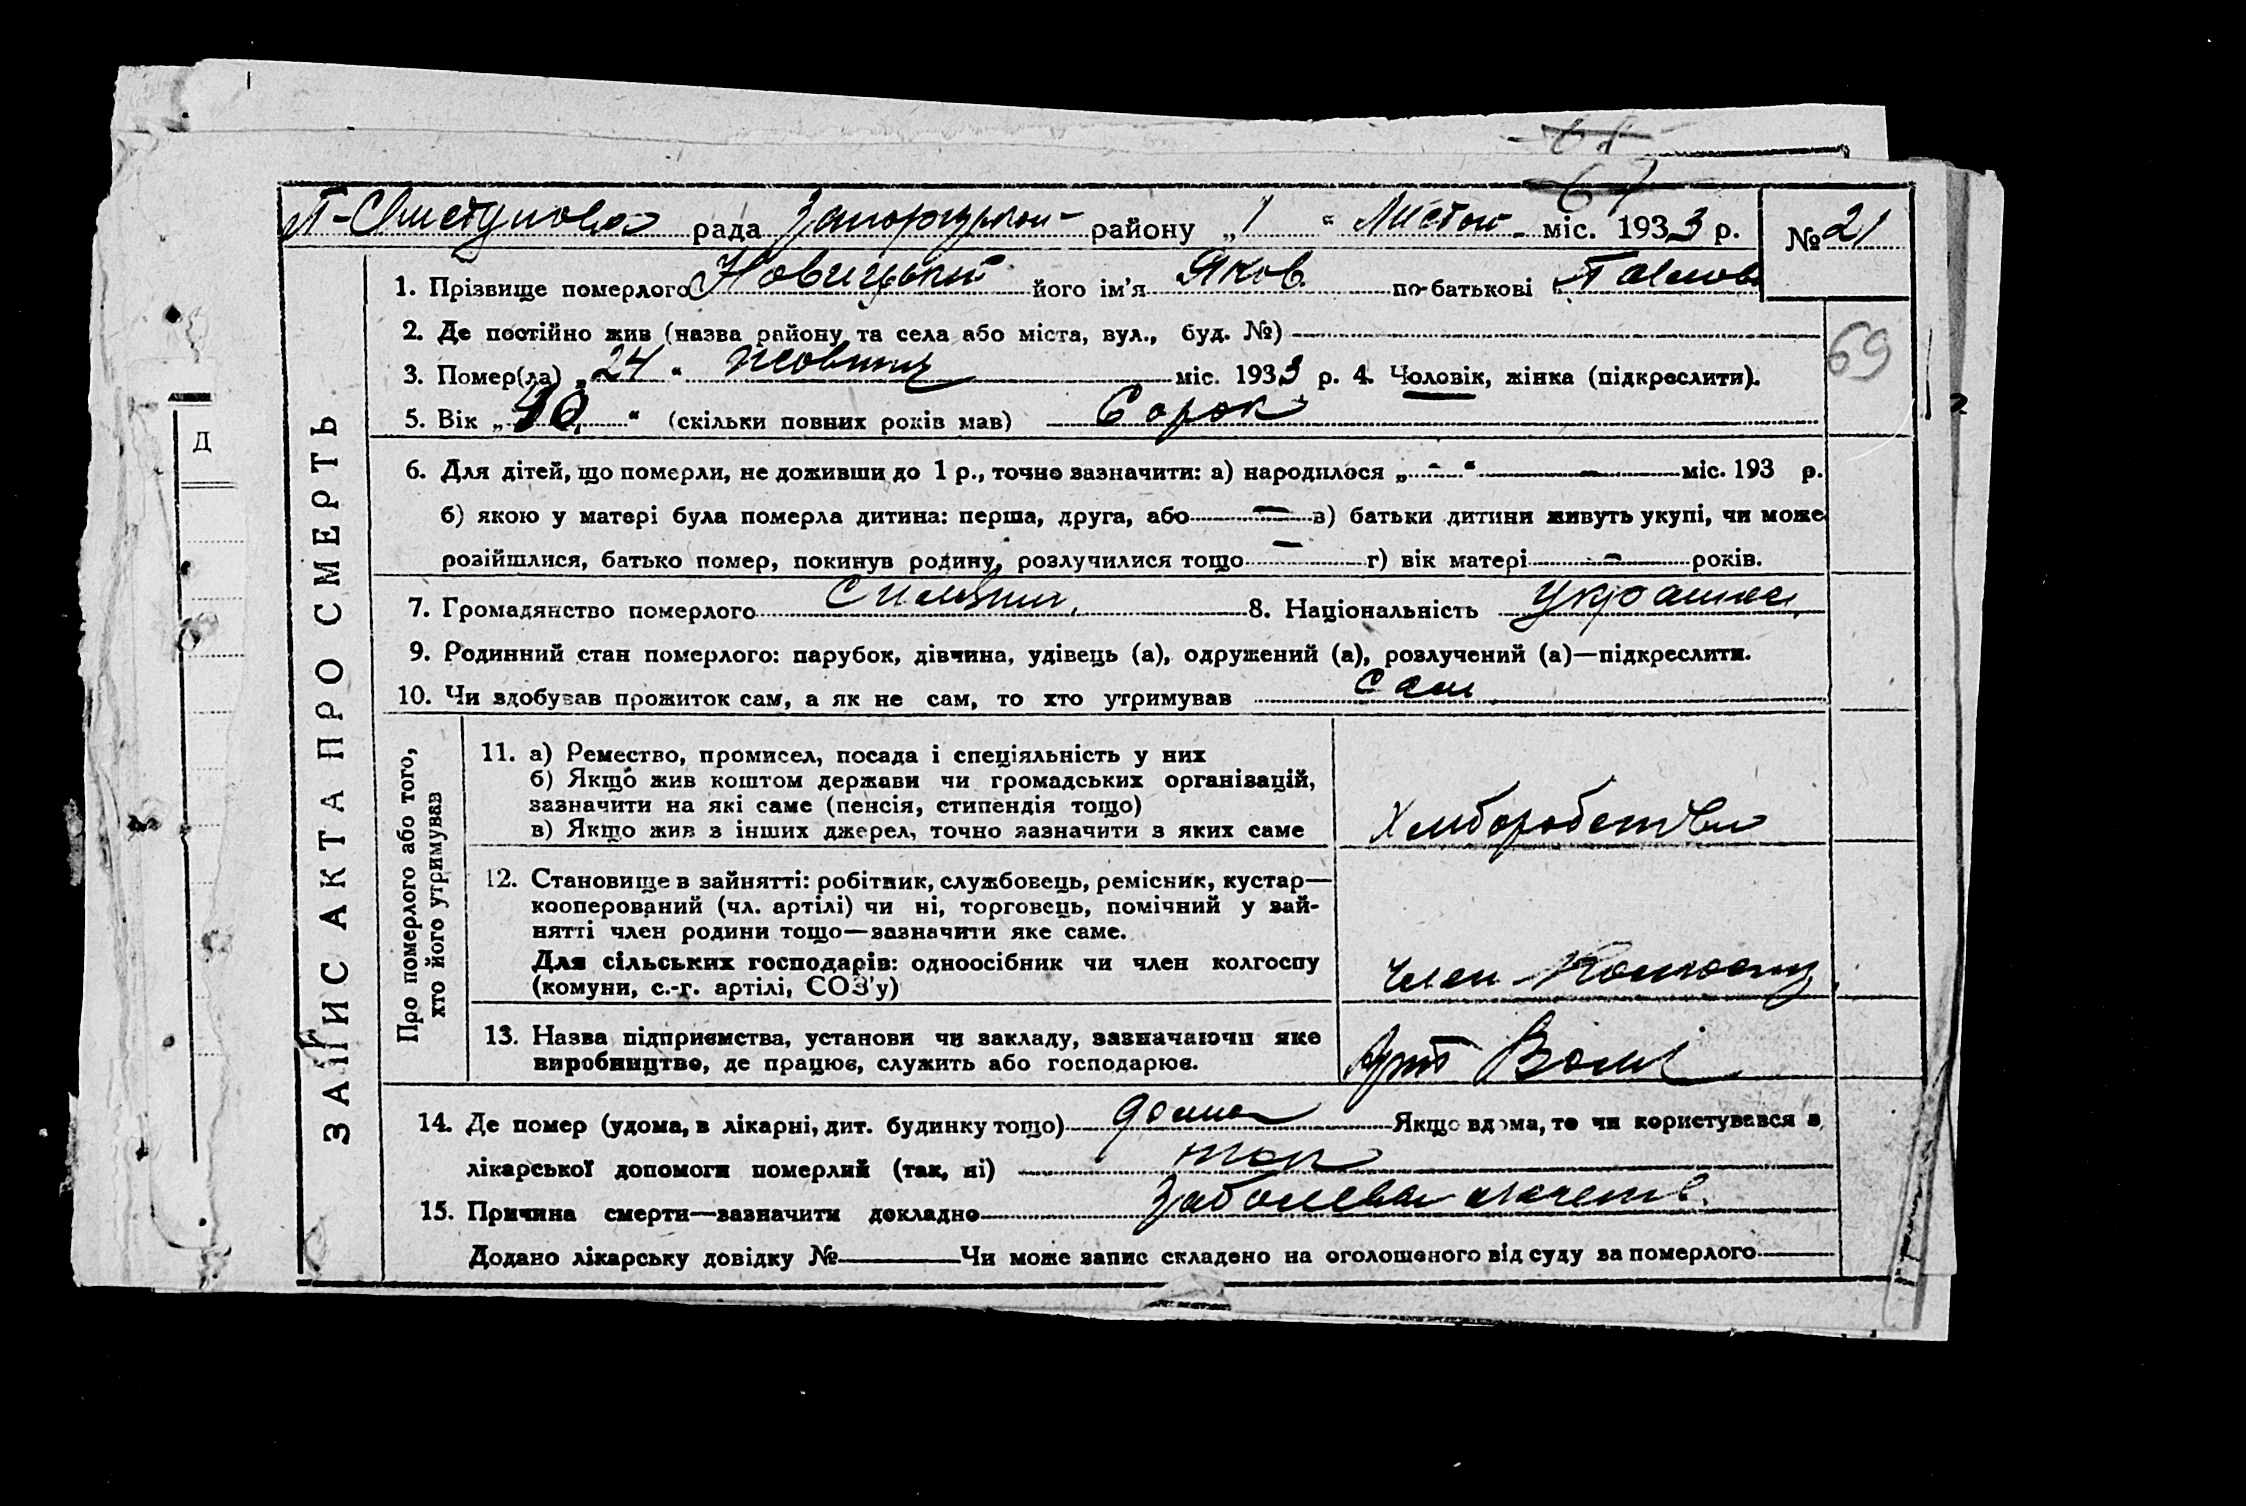 67
П-Свистунова рада Запоризькои району „1“ Листоп міс. 1933 р. № 21
ЗАПИС АКТА ПРО СМЕРТЬ
1. Прізвище померлого Новицький його ім'я Яков по-батькові
2. Де постійно жив (назва району та села або міста, вул., буд. №)
69
3. Помер(ла) „24“ жовтня міс. 1933 р. 4. Чоловік, жінка (підкреслити).
5. Вік „40“ (скільки повних років мав) Сорок
Д
6. Для дітей, що померли, не доживши до 1 р., точно зазначити: а) народилося „-“ - міс. 193 р.
б) якою у матері була померла дитина: перша, друга, або — в) батьки дитини живуть укупі, чи може
розійшлися, батько помер, покинув родину, розлучилися тощо — г) вік матері - років.
7. Громадянство померлого 8. Національність Украинец
9. Родинний стан померлого: парубок, дівчина, удівець (а), одружений (а), розлучений (а)—підкреслити.
10. Чи здобував прожиток сам, а як не сам, то хто утримував сам
Про померлого або того,
хто його утримував
11. а) Ремество, промисел, посада і спеціяльність у них
б) Якщо жив коштом держави чи громадських організацій,
зазначити на які саме (пенсія, стипендія тощо)
в) Якщо жив з інших джерел, точно зазначити з яких саме Хлиборобство
12. Становище в зайнятті: робітник, службовець, ремісник, кустар—
кооперований (чл. артілі) чи ні, торговець, помічний у зай-
нятті член родини тощо—зазначити яке саме.
Для сільських господарів: одноосібник чи член колгоспу
(комуни, с.-г. артілі, СОЗ'у) член Колгоспу
13. Назва підприємства, установи чи закладу, зазначаючи яке
виробництво, де працює, служить або господарює. Арт
14. Де помер (удома, в лікарні, дит. будинку тощо) дома Якщо вдома, то чи користувався з
лікарської допомоги померлий (так, ні) так
15. Причина смерти—зазначити докладно
Додано лікарську довідку № Чи може запис складено на оголошеного від суду за померлого